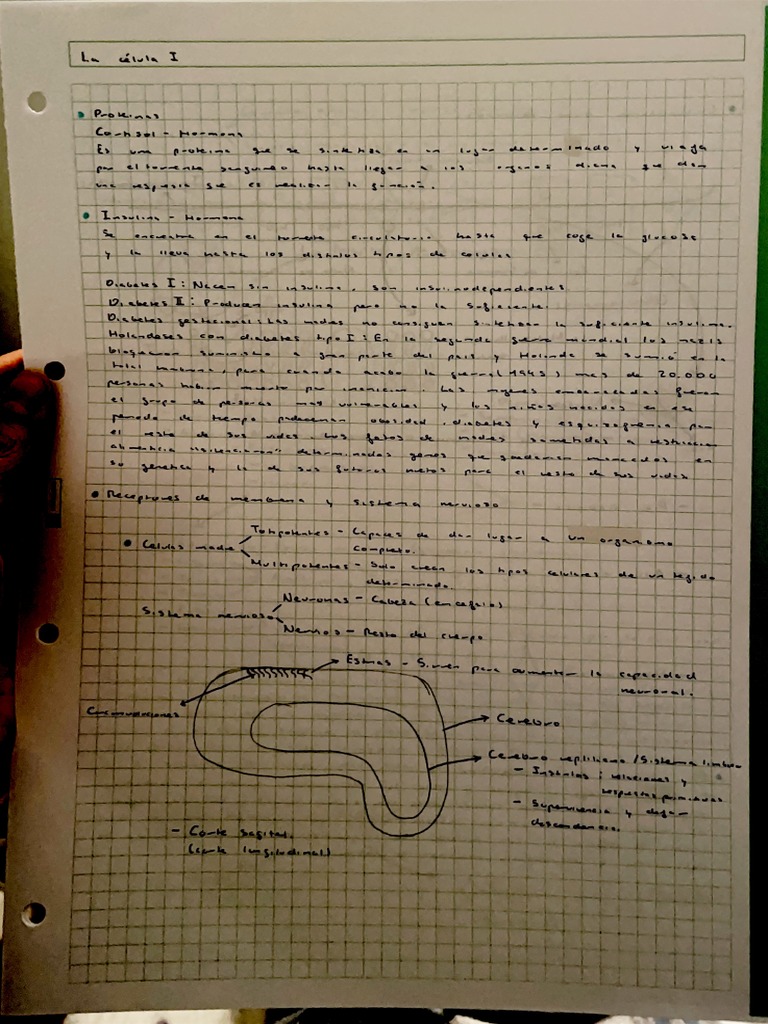 La célula I
Proteinas
Cortisol - Hormona
Es una proteina que se sintetiza en un lugar determinado y viaja
por el torrente sanguineo hasta llegar a los organos diana que dan
una respuesta que es realizar la función.
Insulina - Hormona
Se encuentra en el torrente circulatorio hasta que coge la glucosa
y la lleva hasta los distintos tipos de celulas
Diabetes I: Nacen sin insulina, son insulinodependientes.
Diabetes II: Producen insulina pero no la suficiente.
Diabetes gestacional: Las madres no consiguen sintetizar la suficiente insulina.
Holandeses con diabetes tipo I: En la segunda guerra mundial los nazis
bloquearon suministro a gran parte del pais y Holanda se sumió en la
total hambruna, para cuando acabo la guerra (1945) mas de 20.000
personas habian muerto por inanicion. Las mujeres embarazadas fueron
el grupo de personas mas vulnerables y los niños nacidos en ese
periodo de tiempo padecieron obesidad, diabetes y esquizofrenia por
el resto de sus vidas. Los fetos de madres sometidas a restriccion
alimenticia "silenciaron" determinados genes que quedaron marcados en
su genetica y la de sus futuros nietos para el resto de sus vidas
Receptores de membrana y sistema nervioso
Células madre
Totipotentes - Capaces de dar lugar a un organismo
completo.
Multipotentes - Solo crean los tipos celulares de un tejido
determinado.
Sistema nervioso
Neuronas - Cabeza (encefalo)
Nervios - Resto del cuerpo
Estrias - Sirven para aumentar la capacidad
neuronal.
Circunvoluciones
Cerebro
Cerebro reptiliano / Sistema limbico
- Instintos: relaciones y
respuestas primitivas.
- Supervivencia y dejar
descendencia.
- Corte sagital.
(corte longitudinal)